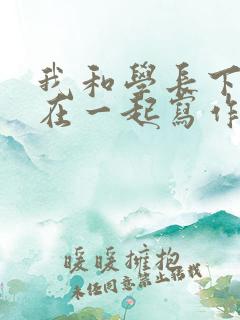 我和學長下
在一起寫作
暖暖擁抱
未经同意禁止搭载